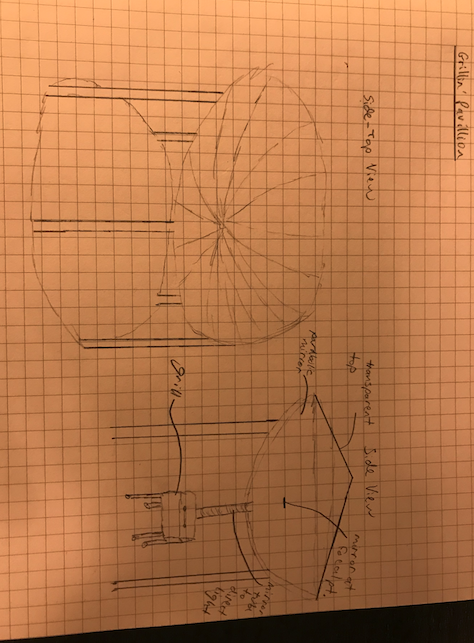 Grillin' Pavillion
Side-Top View
Side View
transparent
top
parabolic
mirror
mirror at
focal pt.
Grill
mirror
tube
to
direct
light